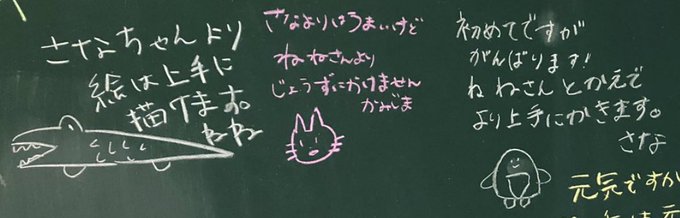 さなちゃんより
絵は上手に
描けます。
ねね
さなよりはうまいけど
ねねさんより
じょうずにかけません
かみじま
初めてですが
がんばります!
ねねさんとかえで
より上手にかきます。
さな
元気ですか